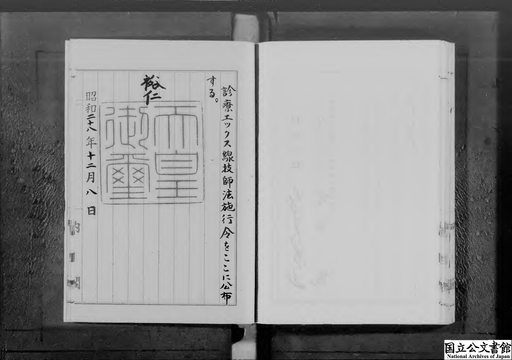 診療エックス線技師法施行令をここに公布
する。
裕仁
天皇
御璽
昭和二十八年十二月八日
国立公文書館
National Archives of Japan